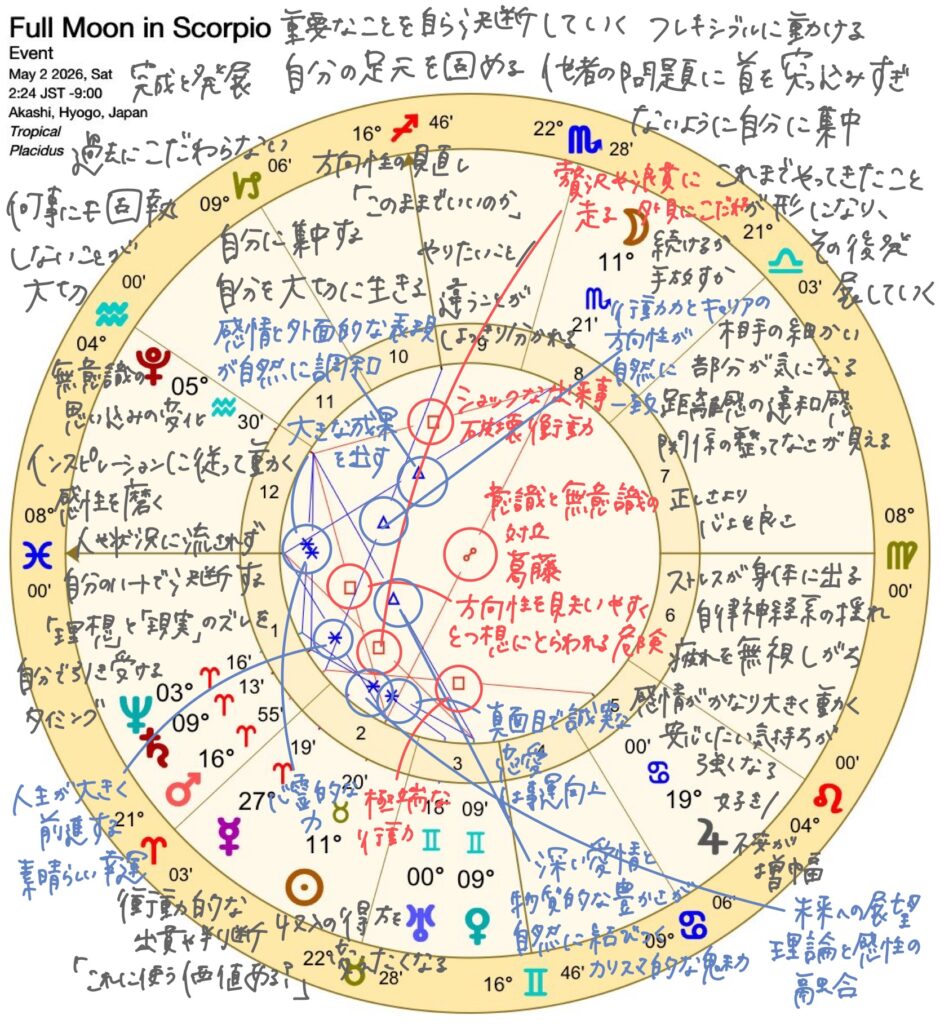 Full Moon in Scorpio
Event
May 2 2026, Sat
2:24 JST -9:00
Akashi, Hyogo, Japan
Tropical
Placidus
重要なことを自ら判断していく フレキシブルに動ける
完成と発展 自分の足元を固める 他者の問題に首を突っ込みすぎ
ないように自分に集中
過去にこだわらない
何事にも固執
しないことが
大切
16° 46'
22° 28'
09° 06'
21° 03'
方向性の見直し
「このままでいいのか」
やりたいこと/
違うことが
はっきり分かれる
贅沢や浪費に
走る 外見にこだわる
これまでやってきたこと
が形になり、
その後発
展していく
11°
21'
続けるか
手放すか
自分に集中する
自分を大切に生きる
感情と外面的な表現
が自然に調和
行動力とキャリアの
方向性が
自然に
一致
相手の細かい
部分が気になる
距離感の違和感
関係の整ってなさが見える
正しさより
心地良さ
00'
04°
05°
30'
無意識の
思い込みの変化
大きな成果
を出す
ショックな出来事
破壊衝動
インスピレーションに従って動く
感性を磨く
人や状況に流されず
自分のハートで判断する
「理想」と「現実」のズレを
自分で引き受ける
タイミング
意識と無意識の
対立
葛藤
方向性を見失いやすく
とっ想にとらわれる危険
08°
00'
08°
00'
ストレスが身体に出る
自律神経系の揺れ
疲れを無視しがち
感情がかなり大きく動く
安心したい気持ちが
強くなる
好き/
不安が
増幅
10
9
8
11
12
7
1
6
2
3
4
5
03° 16'
09° 13'
16° 55'
27° 19'
11° 20'
00° 18'
09° 09'
19° 00'
00'
04°
人生が大きく
前進する
素晴らしい幸運
心霊的な
力
極端な
行動力
真面目で誠実な
恋愛
仕事運向上
深い愛情と
物質的な豊かさが
自然に結びつく
カリスマ的な魅力
未来への展望
理論と感性の
融合
21°
03'
衝動的な
出費や判断
「これに使う価値ある?」
収入の得方を
22° 28'
16° 46'
09° 06'